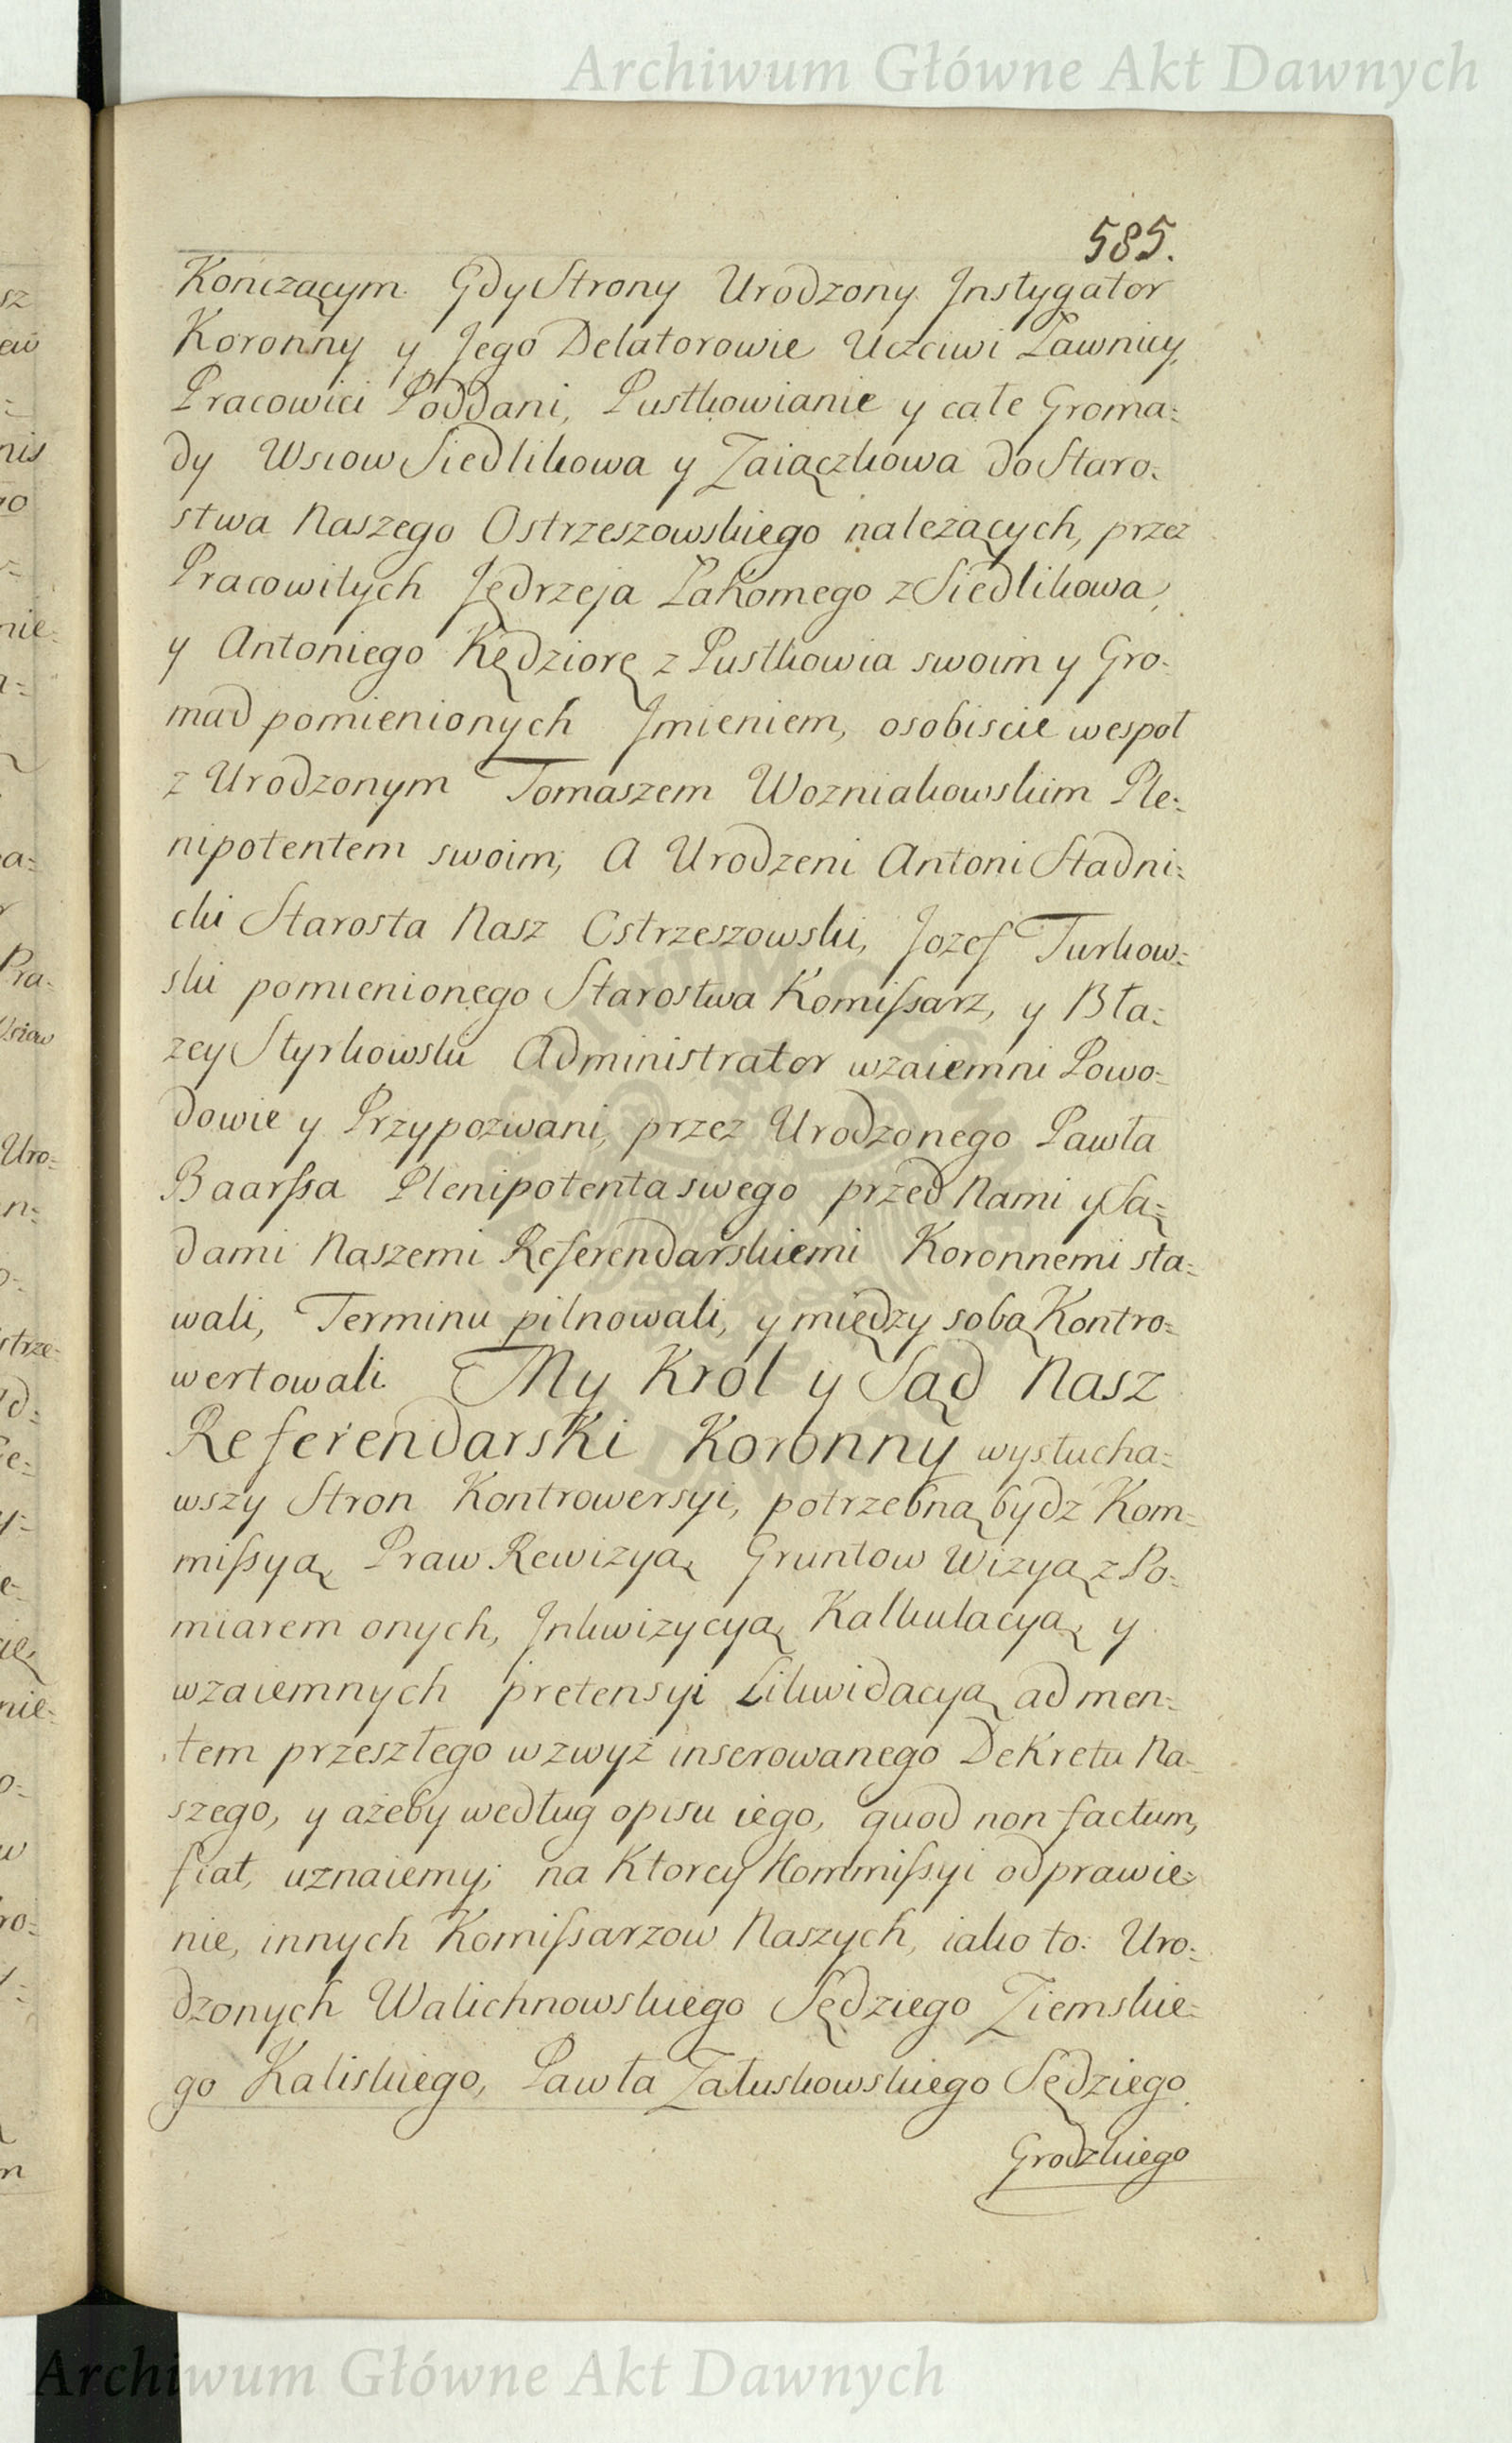 Archiwum Główne Akt Dawnych
585.
Kończącym. Gdy Strony Urodzony Instygator
Koronny y Jego Delatorowie Uczciwi Ławnicy,
Pracowici Poddani, Pustkowianie y całe Groma=
dy Wsiow Siedlikowa y Zaiączkowa do Staro=
stwa Naszego Ostrzeszowskiego należących, przez
Pracowitych Jędrzeja Łakomego z Siedlikowa,
y Antoniego Kędziorę z Pustkowia swoim y Gro=
mad pomienionych Jmieniem, osobiscie wespoł
z Urodzonym Tomaszem Wozniakowskim Ple=
nipotentem swoim; A Urodzeni Antoni Stadni=
cki Starosta Nasz Ostrzeszowski, Jozef Turkow=
ski pomienionego Starostwa Komissarz, y Bła=
zey Styrkowski Administrator wzaiemni Powo=
dowie y Przypozwani, przez Urodzonego Pawła
Baarssa Plenipotenta swego przed Nami y Są=
dami Naszemi Referendarskiemi Koronnemi sta=
wali, Terminu pilnowali, y między sobą Kontro=
wertowali. My Krol y Sąd Nasz
Referendarski Koronny wysłucha=
wszy Stron Kontrowersyi, potrzebną bydź Kom=
missyą, Praw Rewizyą, Gruntow Wizyą z Po=
miarem onych, Inkwizycyą, Kalkulacyą, y
wzaiemnych pretensyi Likwidacyą ad men=
tem przeszłego wzwyż inserowanego Dekretu Na=
szego, y ażeby według opisu iego, quod non factum,
fiat, uznaiemy; na Ktorey Kommissyi odprawie=
nie, innych Komissarzow Naszych, iako to: Uro=
dzonych Walichnowskiego Sędziego Ziemskie=
go Kaliskiego, Pawła Załuskowskiego Sędziego
Grodzkiego
Archiwum Główne Akt Dawnych